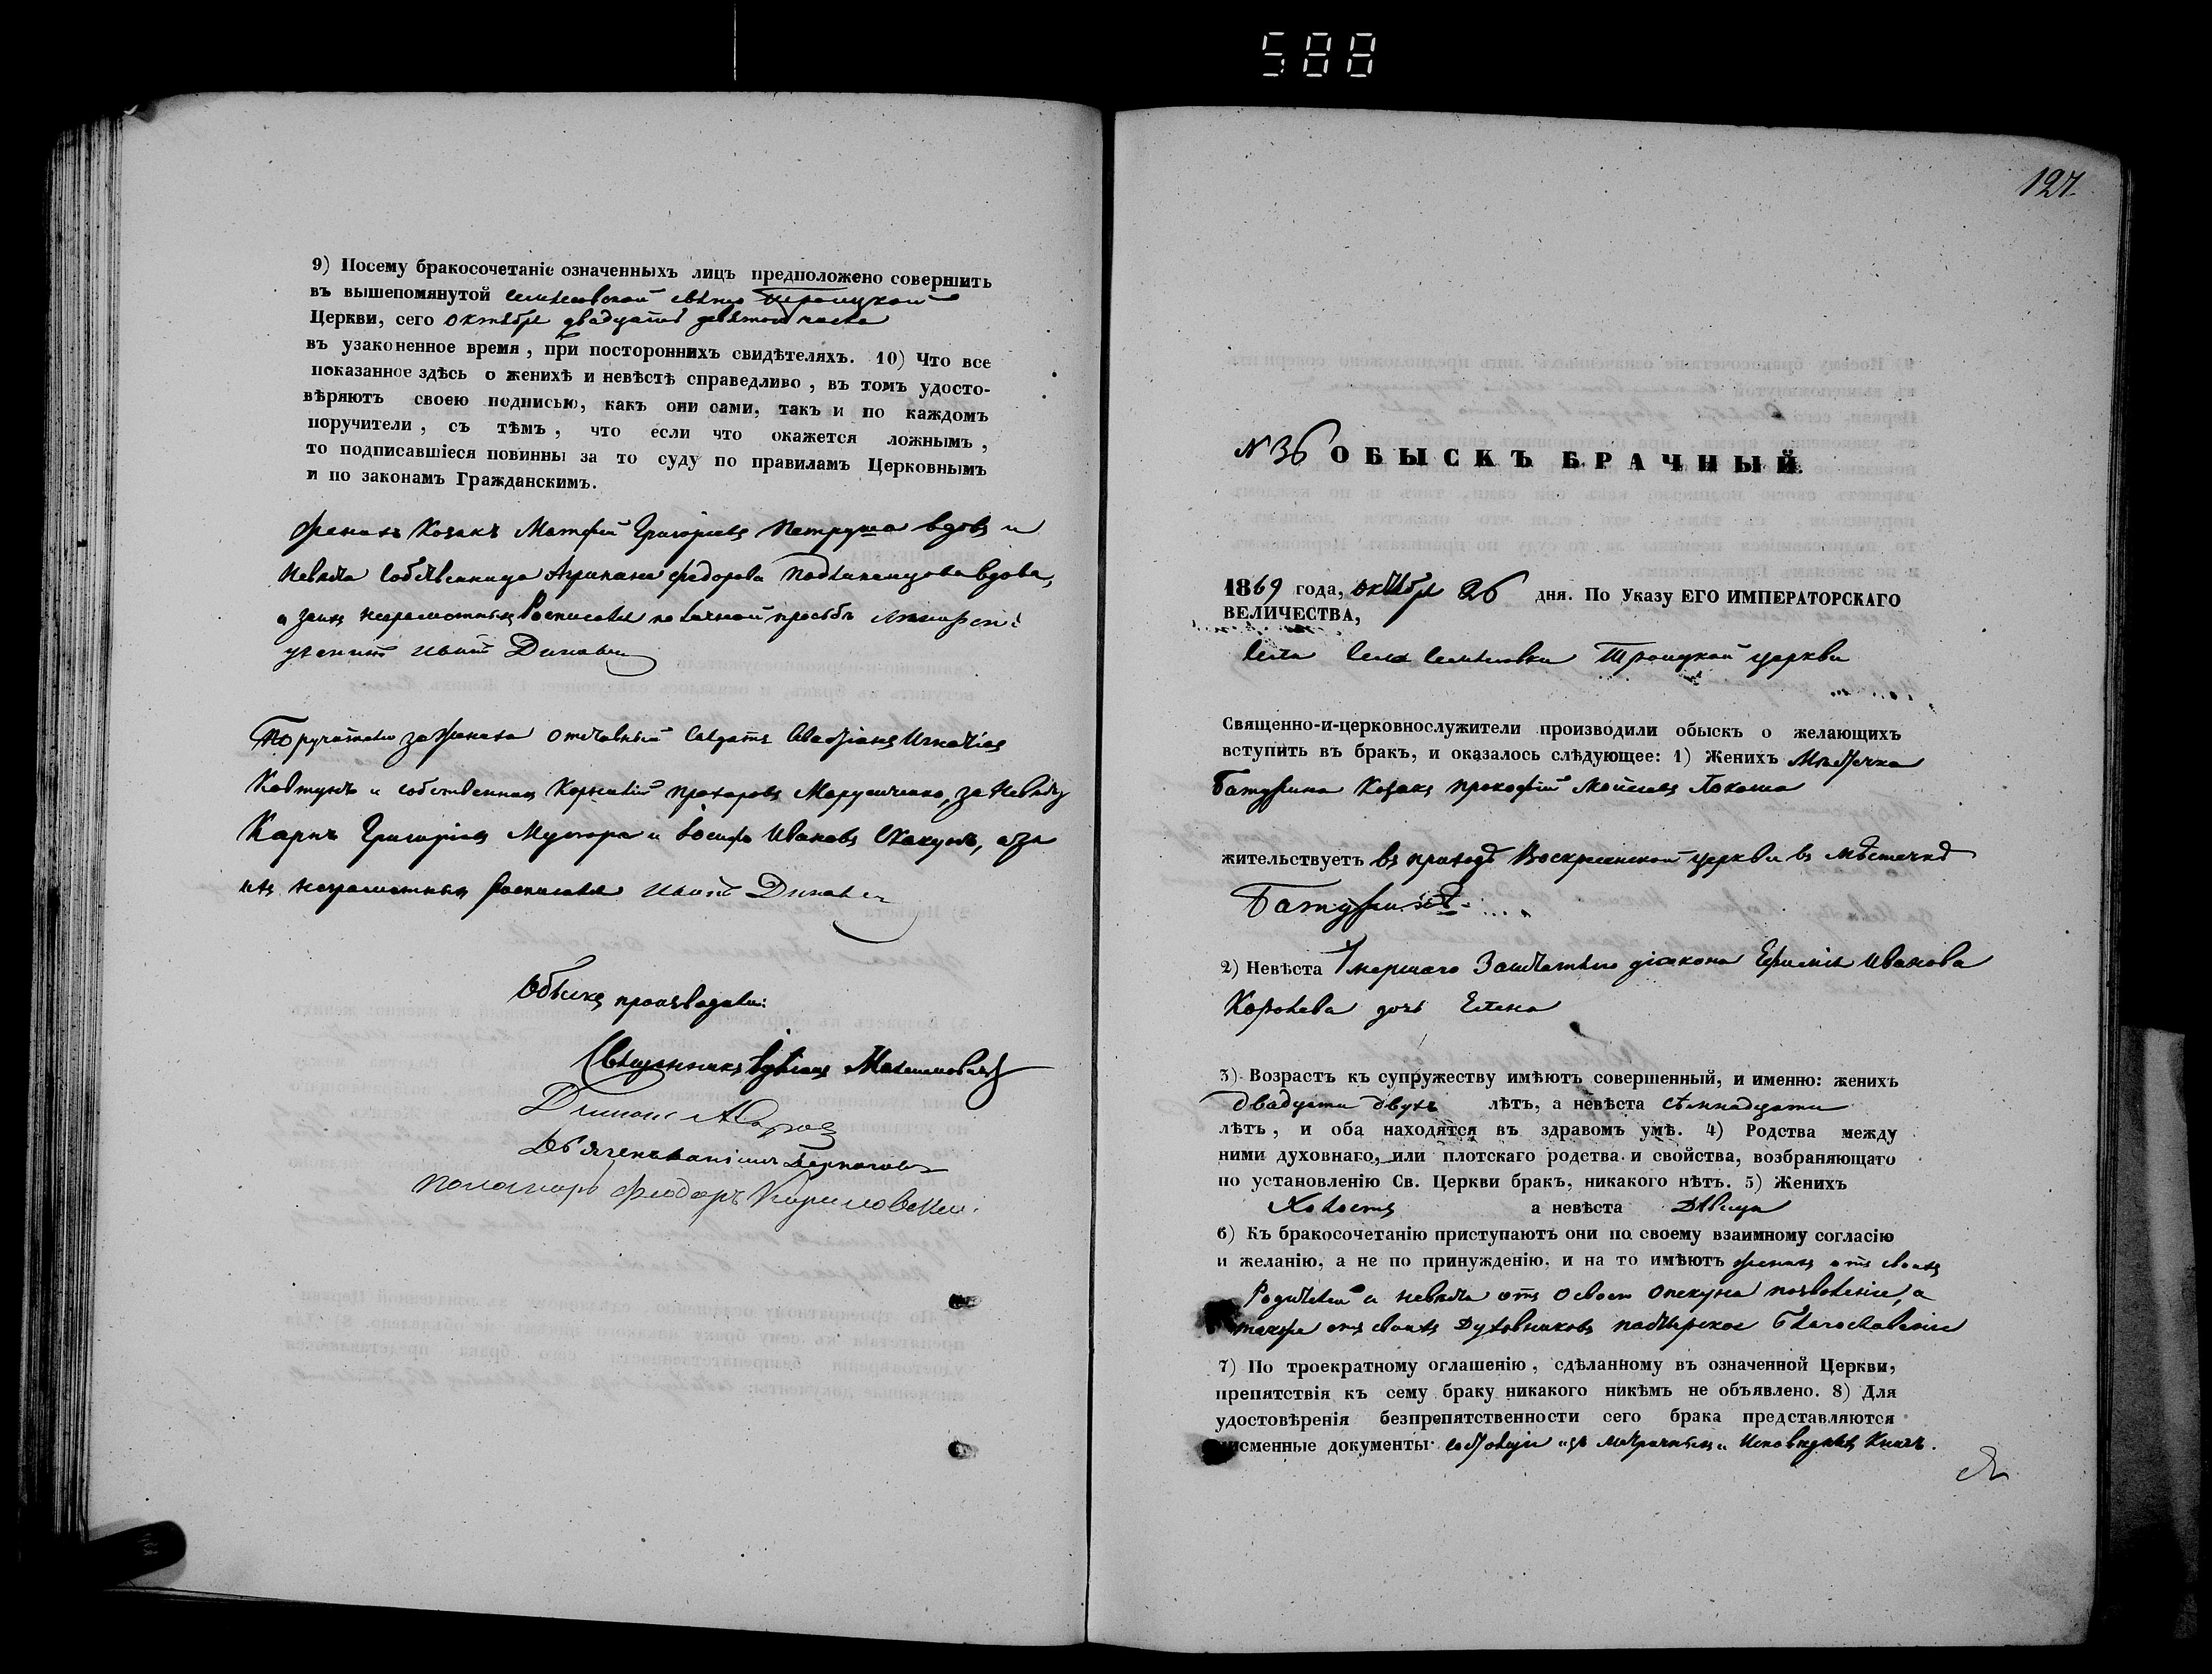 588
9) Посему бракосочетаніе означенныхъ лицъ предположено совершить
въ вышепомянутой Троицкой
Церкви, сего октября двадцать девятого числа
въ узаконенное время, при постороннихъ свидѣтеляхъ. 10) Что все
показанное здѣсь о женихѣ и невѣстѣ справедливо, въ томъ удосто-
вѣряютъ своею подписью, какъ они сами, такъ и по каждомъ
поручители, съ тѣмъ, что если что окажется ложнымъ,
то подписавшіеся повинны за то суду по правиламъ Церковнымъ
и по законамъ Гражданскимъ.
Женихъ Козакъ Матфей Григоріевъ Петруша вдовъ и
Невѣста собственница Федорова вдова,
а за ихъ неграмотныхъ Росписался по личной просьбѣ
Иванъ
Поручители за Жениха отставный Солдатъ Игнатіевъ
Ковтунъ и собственникъ Корнилій Прохоровъ Марусиченко, за Невѣсту
Карпъ Григоріевъ и Іосифъ Ивановъ Скакунъ, а за
ихъ неграмотныхъ росписался Иванъ
Обыскъ производили:
Священникъ Максимовичъ
Діаконъ
Пономарь Феодоръ
127.
N 36 ОБЫСКЪ БРАЧНЫЙ.
1869 года, октября 26 дня. По Указу ЕГО ИМПЕРАТОРСКАГО
ВЕЛИЧЕСТВА,
села Троицкой церкви
Священно-и-церковнослужители производили обыскъ о желающихъ
вступить въ бракъ, и оказалось слѣдующее: 1) Женихъ Мѣстечка
Батурина Козакъ Прокофій Моисеевъ
жительствуетъ въ приходѣ Воскресенской церкви въ мѣстечкѣ
Батуринѣ.
2) Невѣста Умершаго Заштатнаго діакона Иванова
Королева дочь Елена
3) Возрастъ къ супружеству имѣютъ совершенный, и именно: женихъ
двадцати двухъ лѣтъ, а невѣста семнадцати
лѣтъ, и оба находятся въ здравомъ умѣ. 4) Родства между
ними духовнаго, или плотскаго родства и свойства, возбраняющаго
по установленію Св. Церкви бракъ, никакого нѣтъ. 5) Женихъ
Холостъ а невѣста Дѣвица
6) Къ бракосочетанію приступаютъ они по своему взаимному согласію
и желанію, а не по принужденію, и на то имѣютъ женихъ отъ своихъ
Родителей а невѣста отъ своего опекуна позволеніе, а
также отъ своихъ Духовниковъ пастырское благословеніе
7) По троекратному оглашенію, сдѣланному въ означенной Церкви,
препятствія къ сему браку никакого никѣмъ не объявлено. 8) Для
удостовѣренія безпрепятственности сего брака представляются
письменные документы: изъ метричныхъ и Исповѣдныхъ Книгъ.